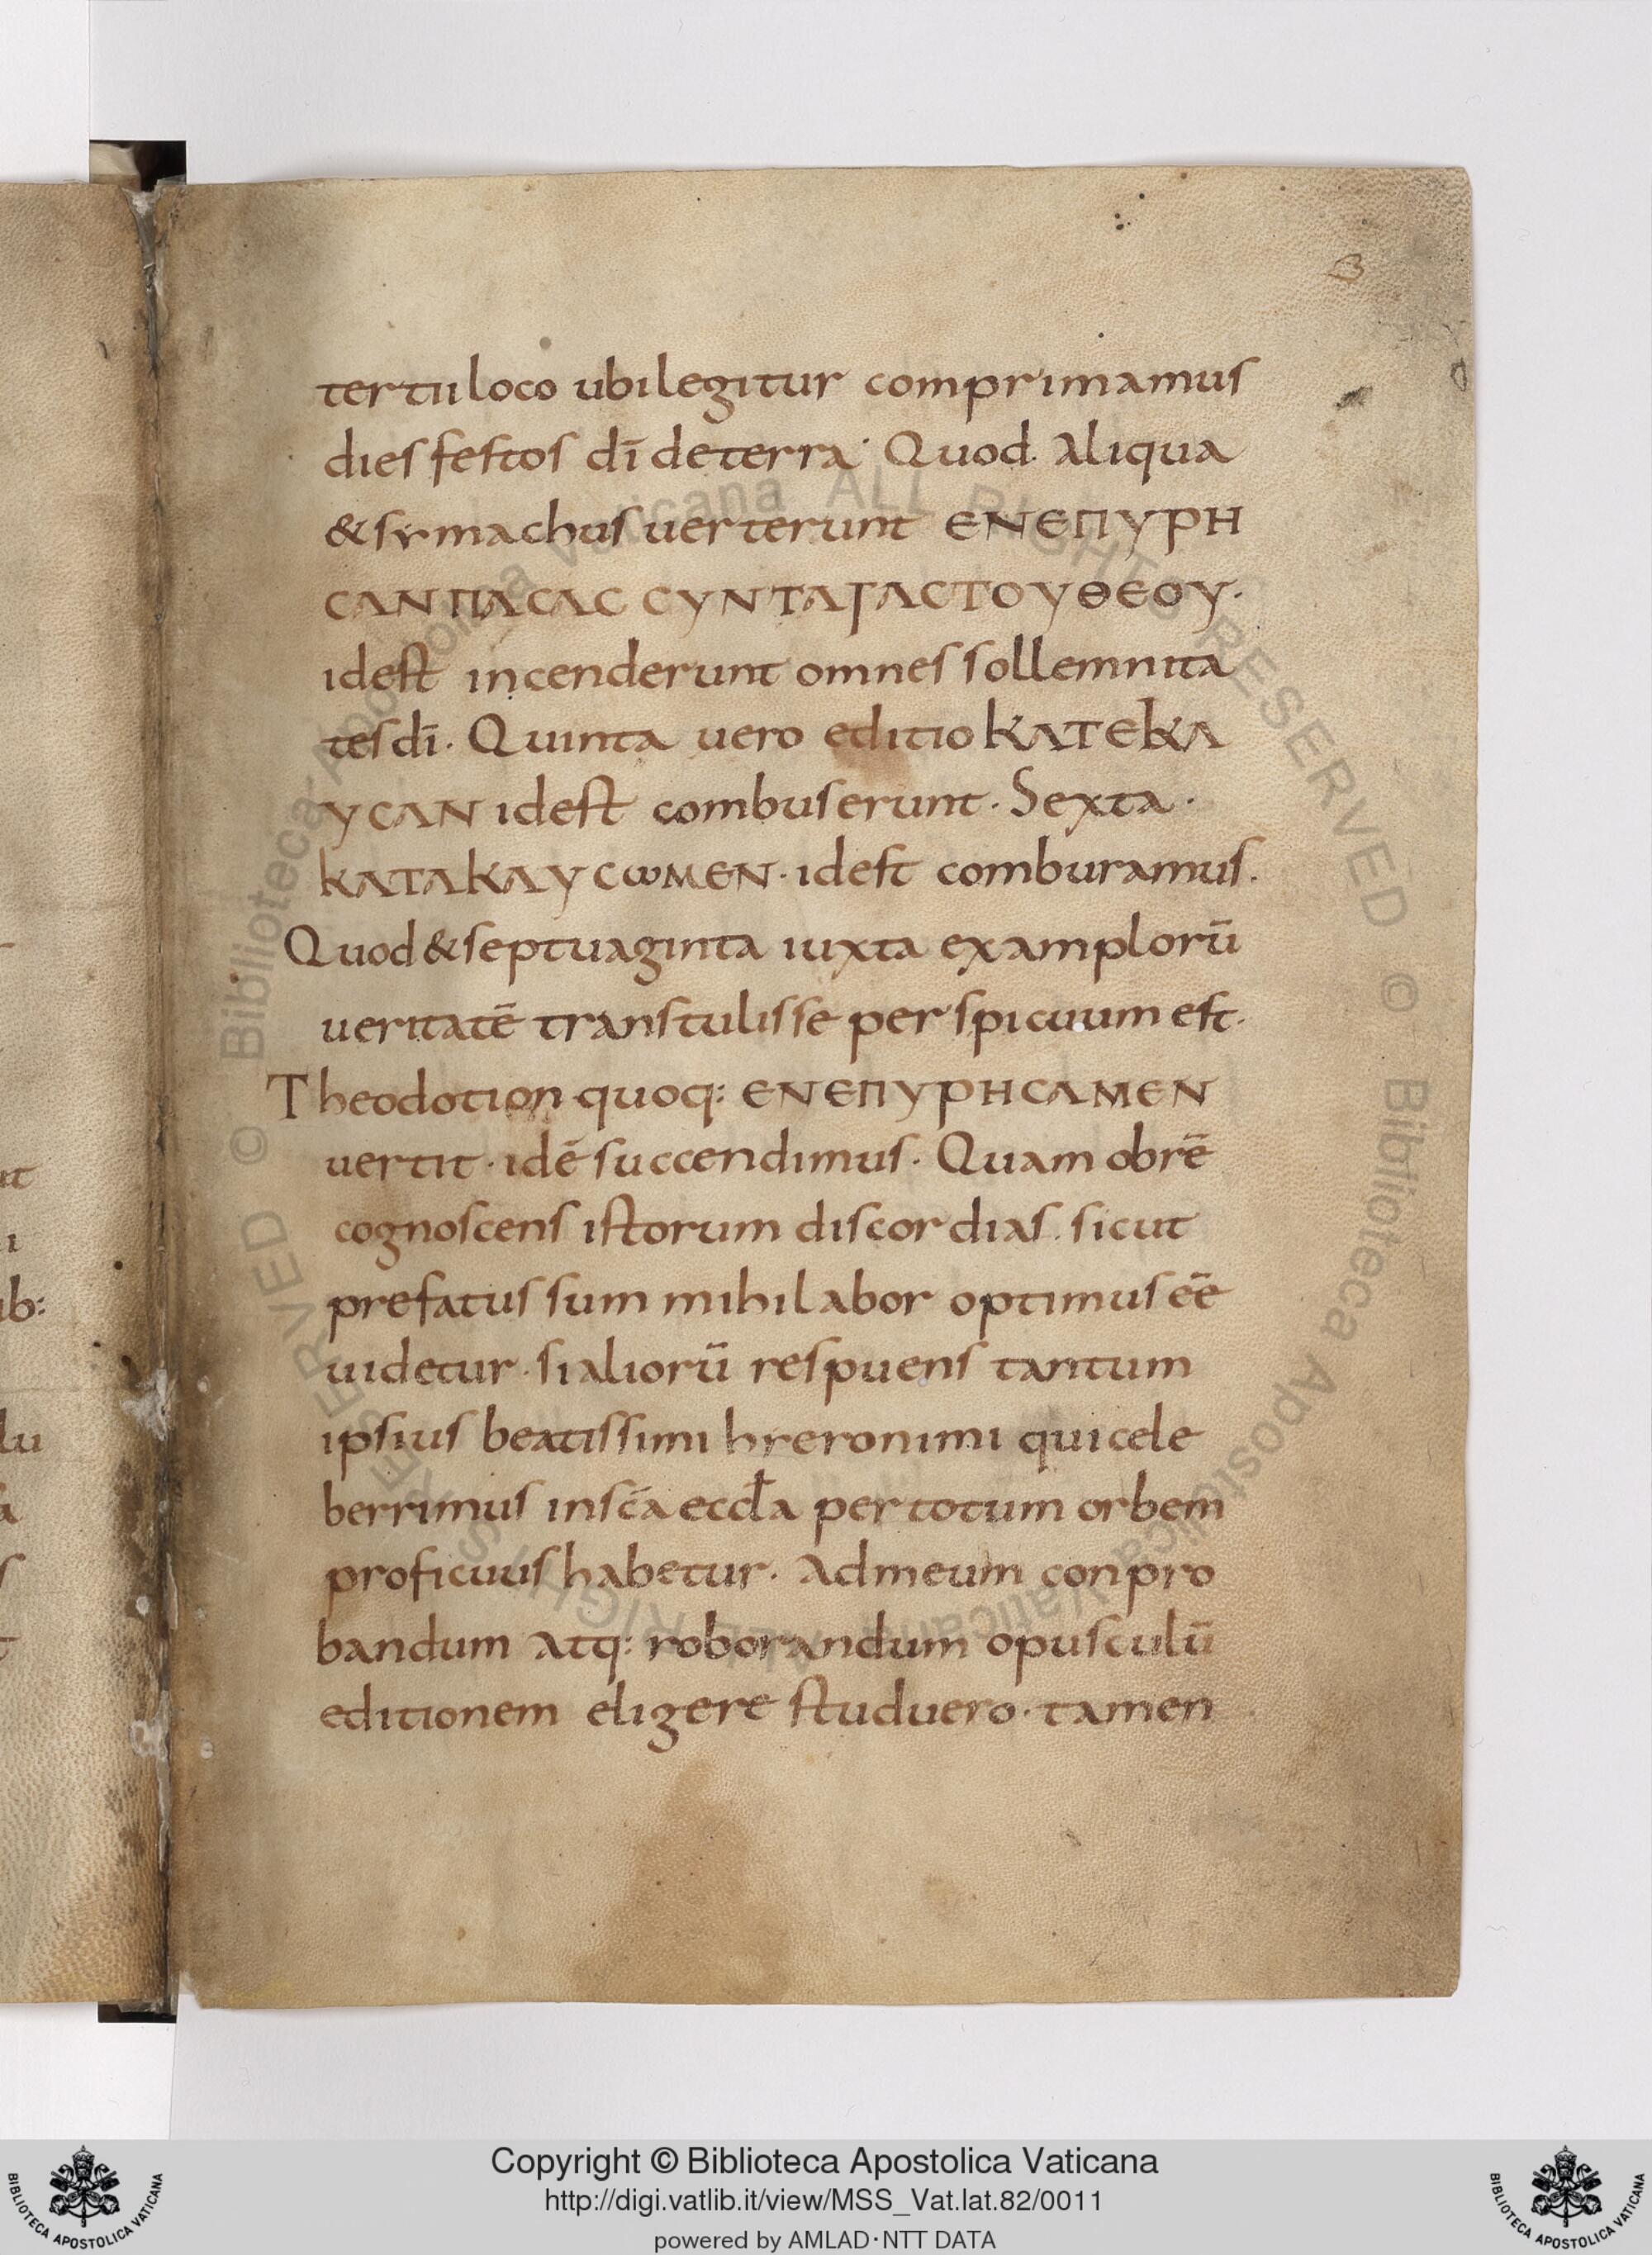 3
tertii loco ubi legitur comprimamus
dies festos dī de terra· Quod. aliqua
& symachus uerterunt ЄΝЄΠΥΡΗ
CΑΝ ΠΑCΑC CΥΝΤΑΓΑCΤΟΥΘЄΟΥ·
idest incenderunt omnes sollemnita
tes dī· Quinta uero editio ΚΑΤЄΚΑ
ΥCΑΝ idest combuserunt· Sexta·
ΚΑΤΑΚΑΥCωΜЄΝ· idest comburamus.
Quod & septuaginta iuxta examplorū
ueritatē transtulisse perspicuum est·
Theodotion quoq: ЄΝЄΠΥΡΗCΑΜЄΝ
uertit· idē succendimus· Quam obrē
cognoscens istorum discordias. sicut
prefatus sum mihi labor optimus eē
uidetur· si aliorū respuens tantum
ipsius beatissimi hyeronimi qui cele
berrimus in scā eccła per totum orbem
proficuus habetur· Ad meum conpro
bandum atq: roborandum opusculū
editionem eligere studuero· tamen
ib:
lu
Copyright © Biblioteca Apostolica Vaticana
http://digi.vatlib.it/view/MSS_Vat.lat.82/0011
powered by AMLAD·NTT DATA
BIBLIOTECA APOSTOLICA VATICANA
BIBLIOTECA APOSTOLICA VATICANA
© Biblioteca Apostolica Vaticana ALL RIGHTS RESERVED © Biblioteca Apostolica Vaticana ALL RIGHTS RESERVED